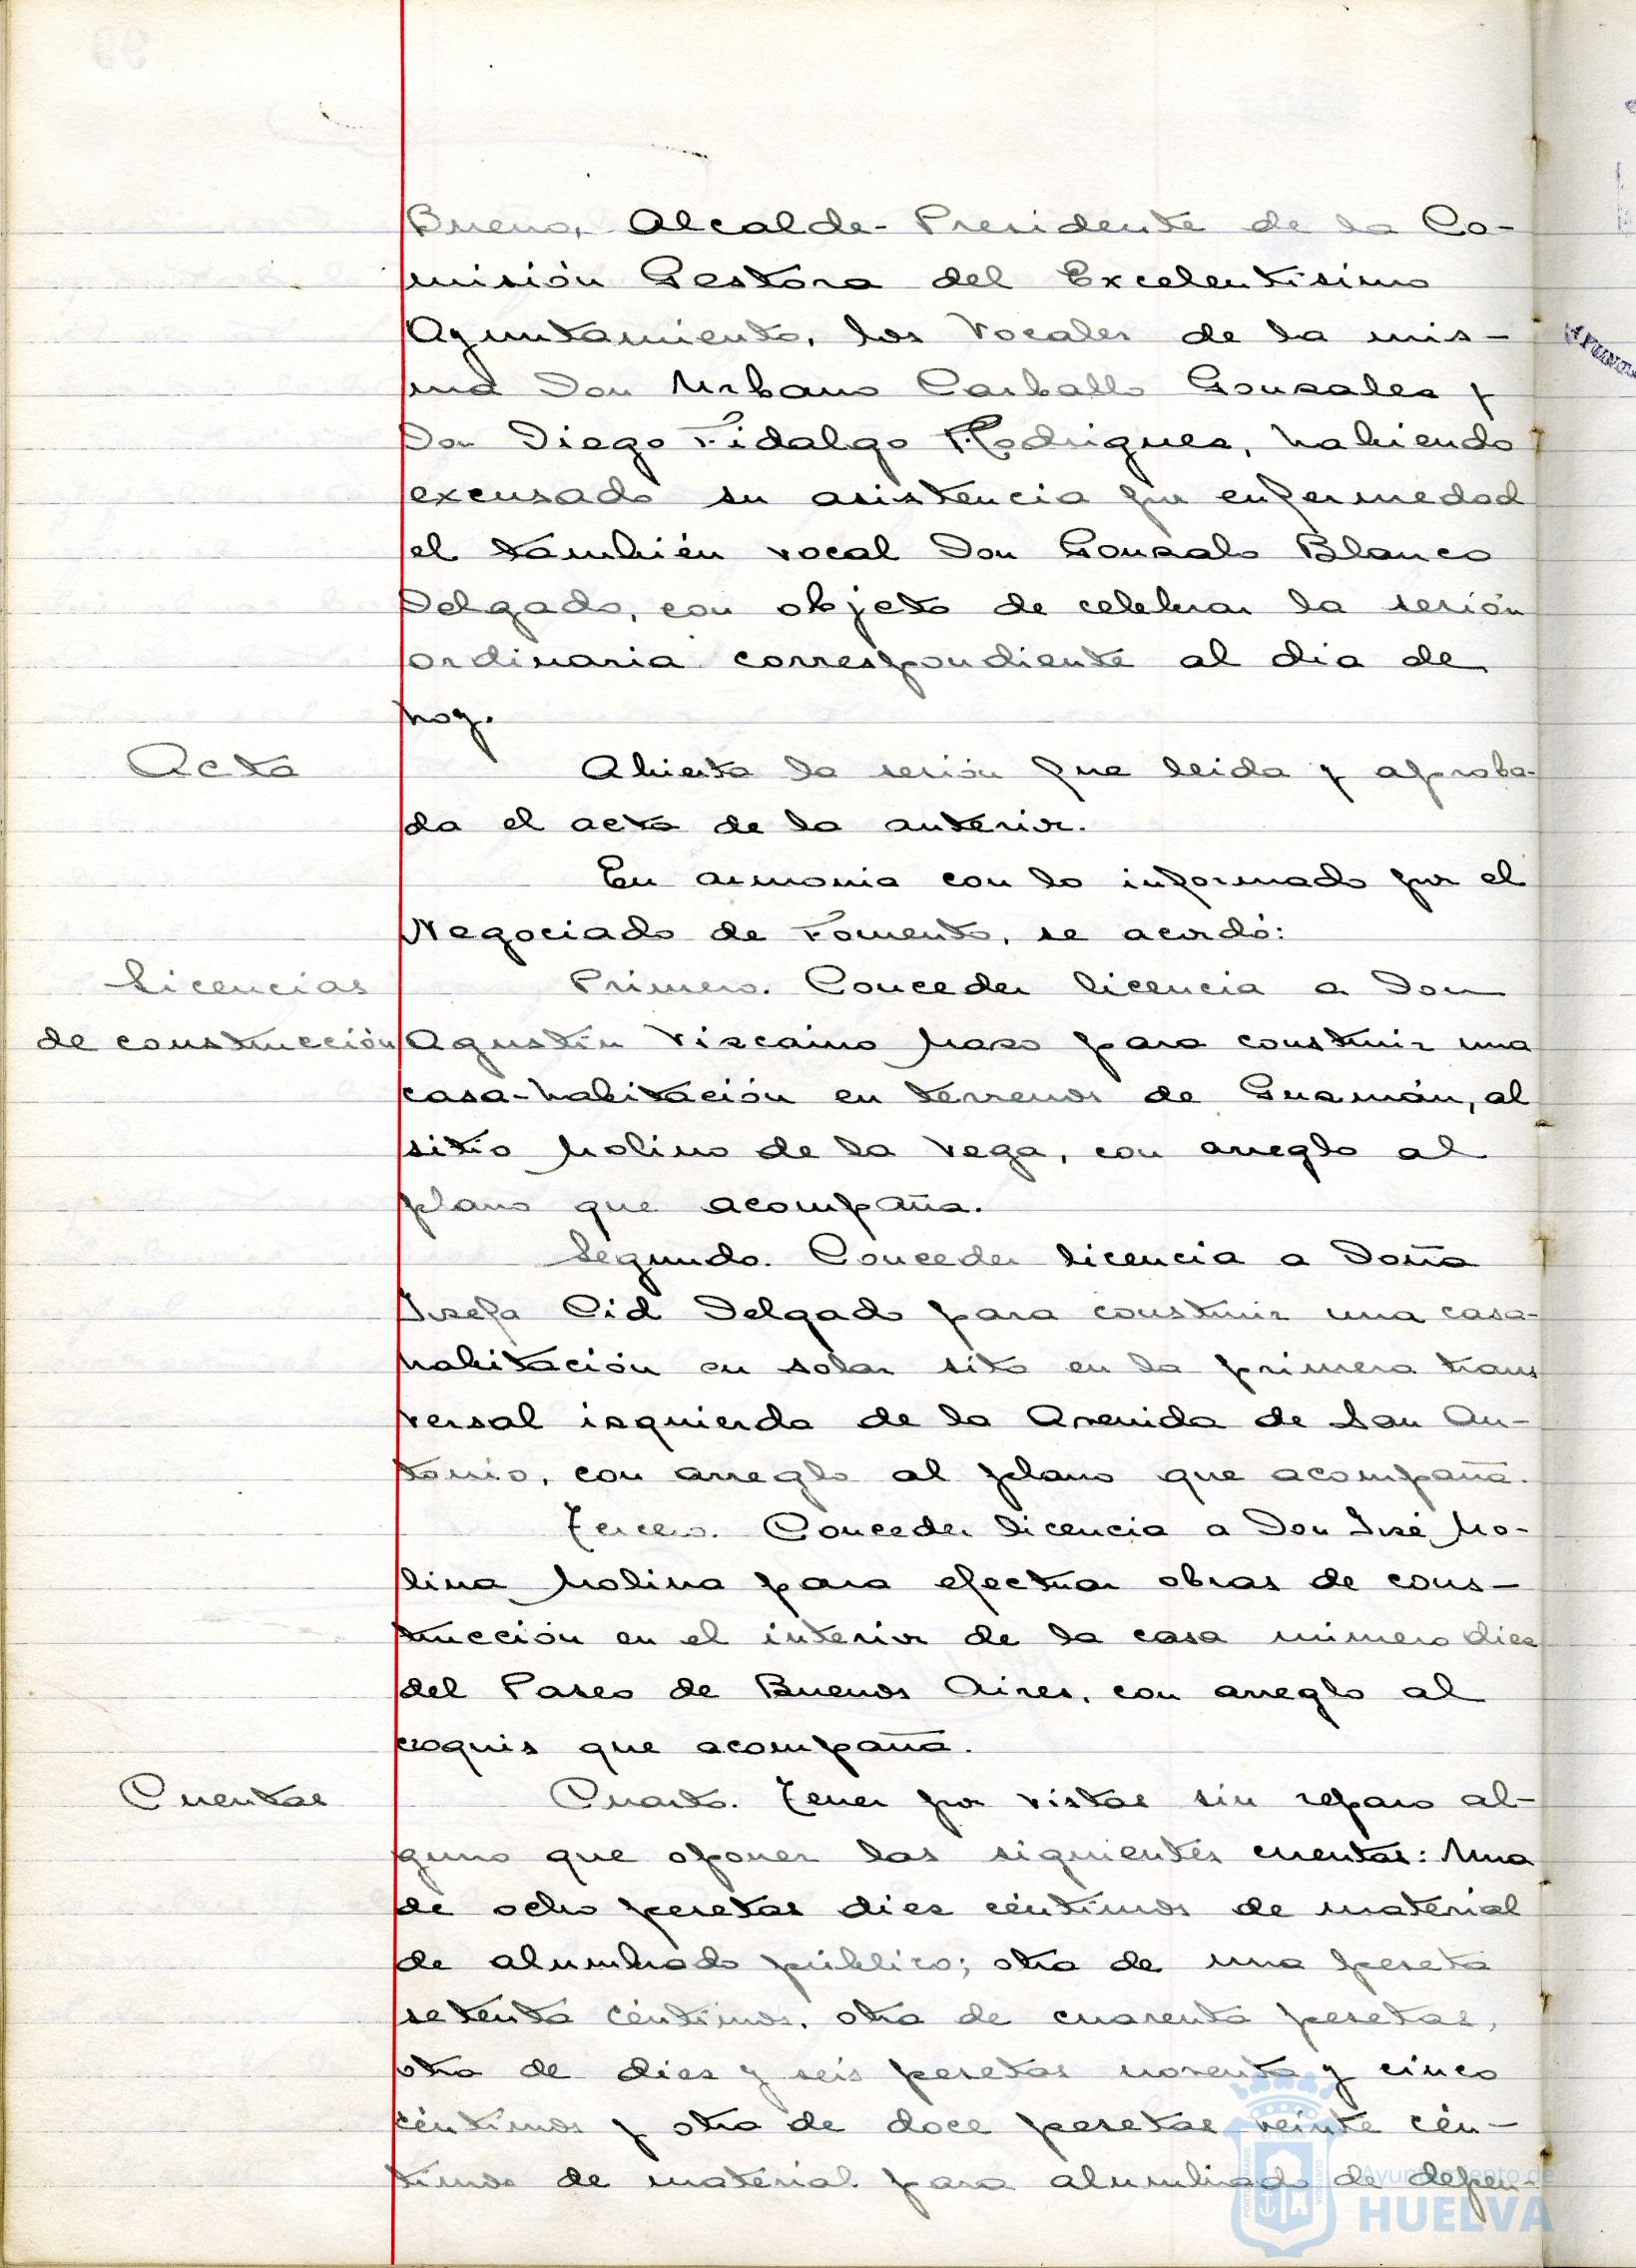 Bueno, Alcalde-Presidente de la Co-
misión Gestora del Excelentísimo
Ayuntamiento, los Vocales de la mis-
ma Don Urbano Carballo Gonzalez y
Don Diego Fidalgo Rodriguez, habiendo
excusado su asistencia por enfermedad
el también vocal Don Gonzalo Blanco
Delgado, con objeto de celebrar la sesión
ordinaria correspondiente al dia de
hoy.
Acta
Abierta la sesión fue leida y aproba-
da el acta de la anterior.
En armonia con lo informado por el
Negociado de Fomento, se acordó:
Licencias
de construcción
Primero. Conceder licencia a Don
Agustín Vizcaino Mazo para construir una
casa-habitación en terrenos de Guzmán, al
sitio Molino de la Vega, con arreglo al
plano que acompaña.
Segundo. Conceder licencia a Doña
Josefa Cid Delgado para construir una casa-
habitación en solar sito en la primera trans
versal izquierda de la Avenida de San An-
tonio, con arreglo al plano que acompaña.
Tercero. Conceder licencia a Don José Mo-
lina Molina para efectuar obras de cons-
trucción en el interior de la casa número diez
del Paseo de Buenos Aires, con arreglo al
croquis que acompaña.
Cuentas
Cuarto. Tener por vistas sin reparo al-
guno que oponer las siguientes cuentas: Una
de ocho pesetas diez céntimos de material
de alumbrado público; otra de una peseta
setenta céntimos, otra de cuarenta pesetas,
otra de diez y seis pesetas noventa y cinco
céntimos y otra de doce pesetas veinte cén-
timos de material para alumbrado de depen-
Ayuntamiento de
HUELVA